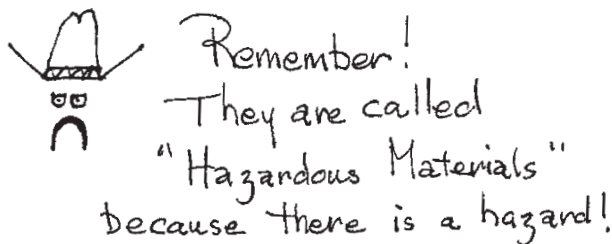 Remember!
They are called
"Hazardous Materials"
because there is a hazard!